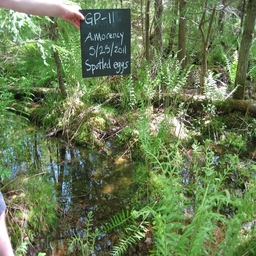 GP-11
A. Morency
5/25/2011
Spotted eggs